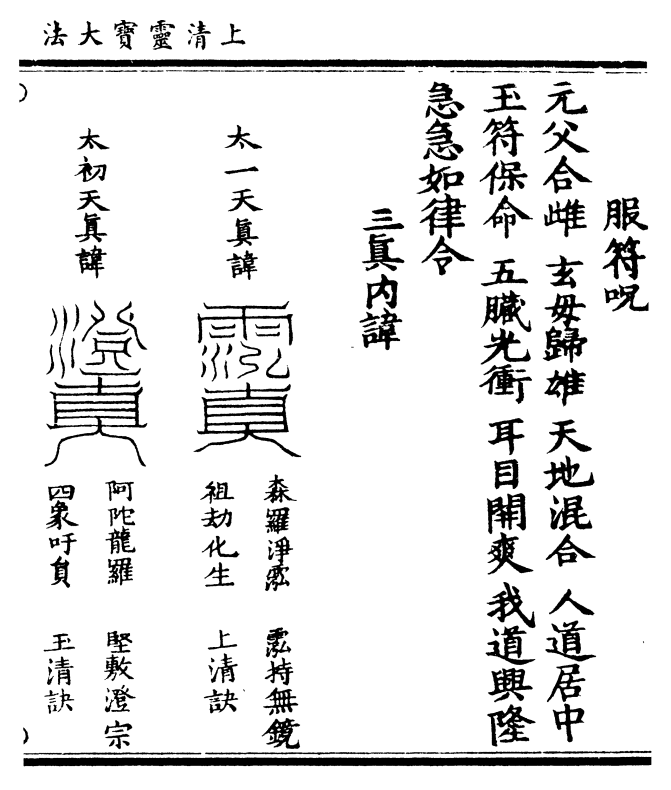 上清靈寶大法
服符呪
元父合雌 玄母歸雄 天地混合 人道居中
玉符保命 五臟光衝 耳目開爽 我道興隆
急急如律令
三眞內諱
太一天眞諱
森羅淨霐 霐持無鏡
祖劫化生 上清訣
太初天眞諱
阿陀龍羅 堅敷澄宗
四象吁負 玉清訣